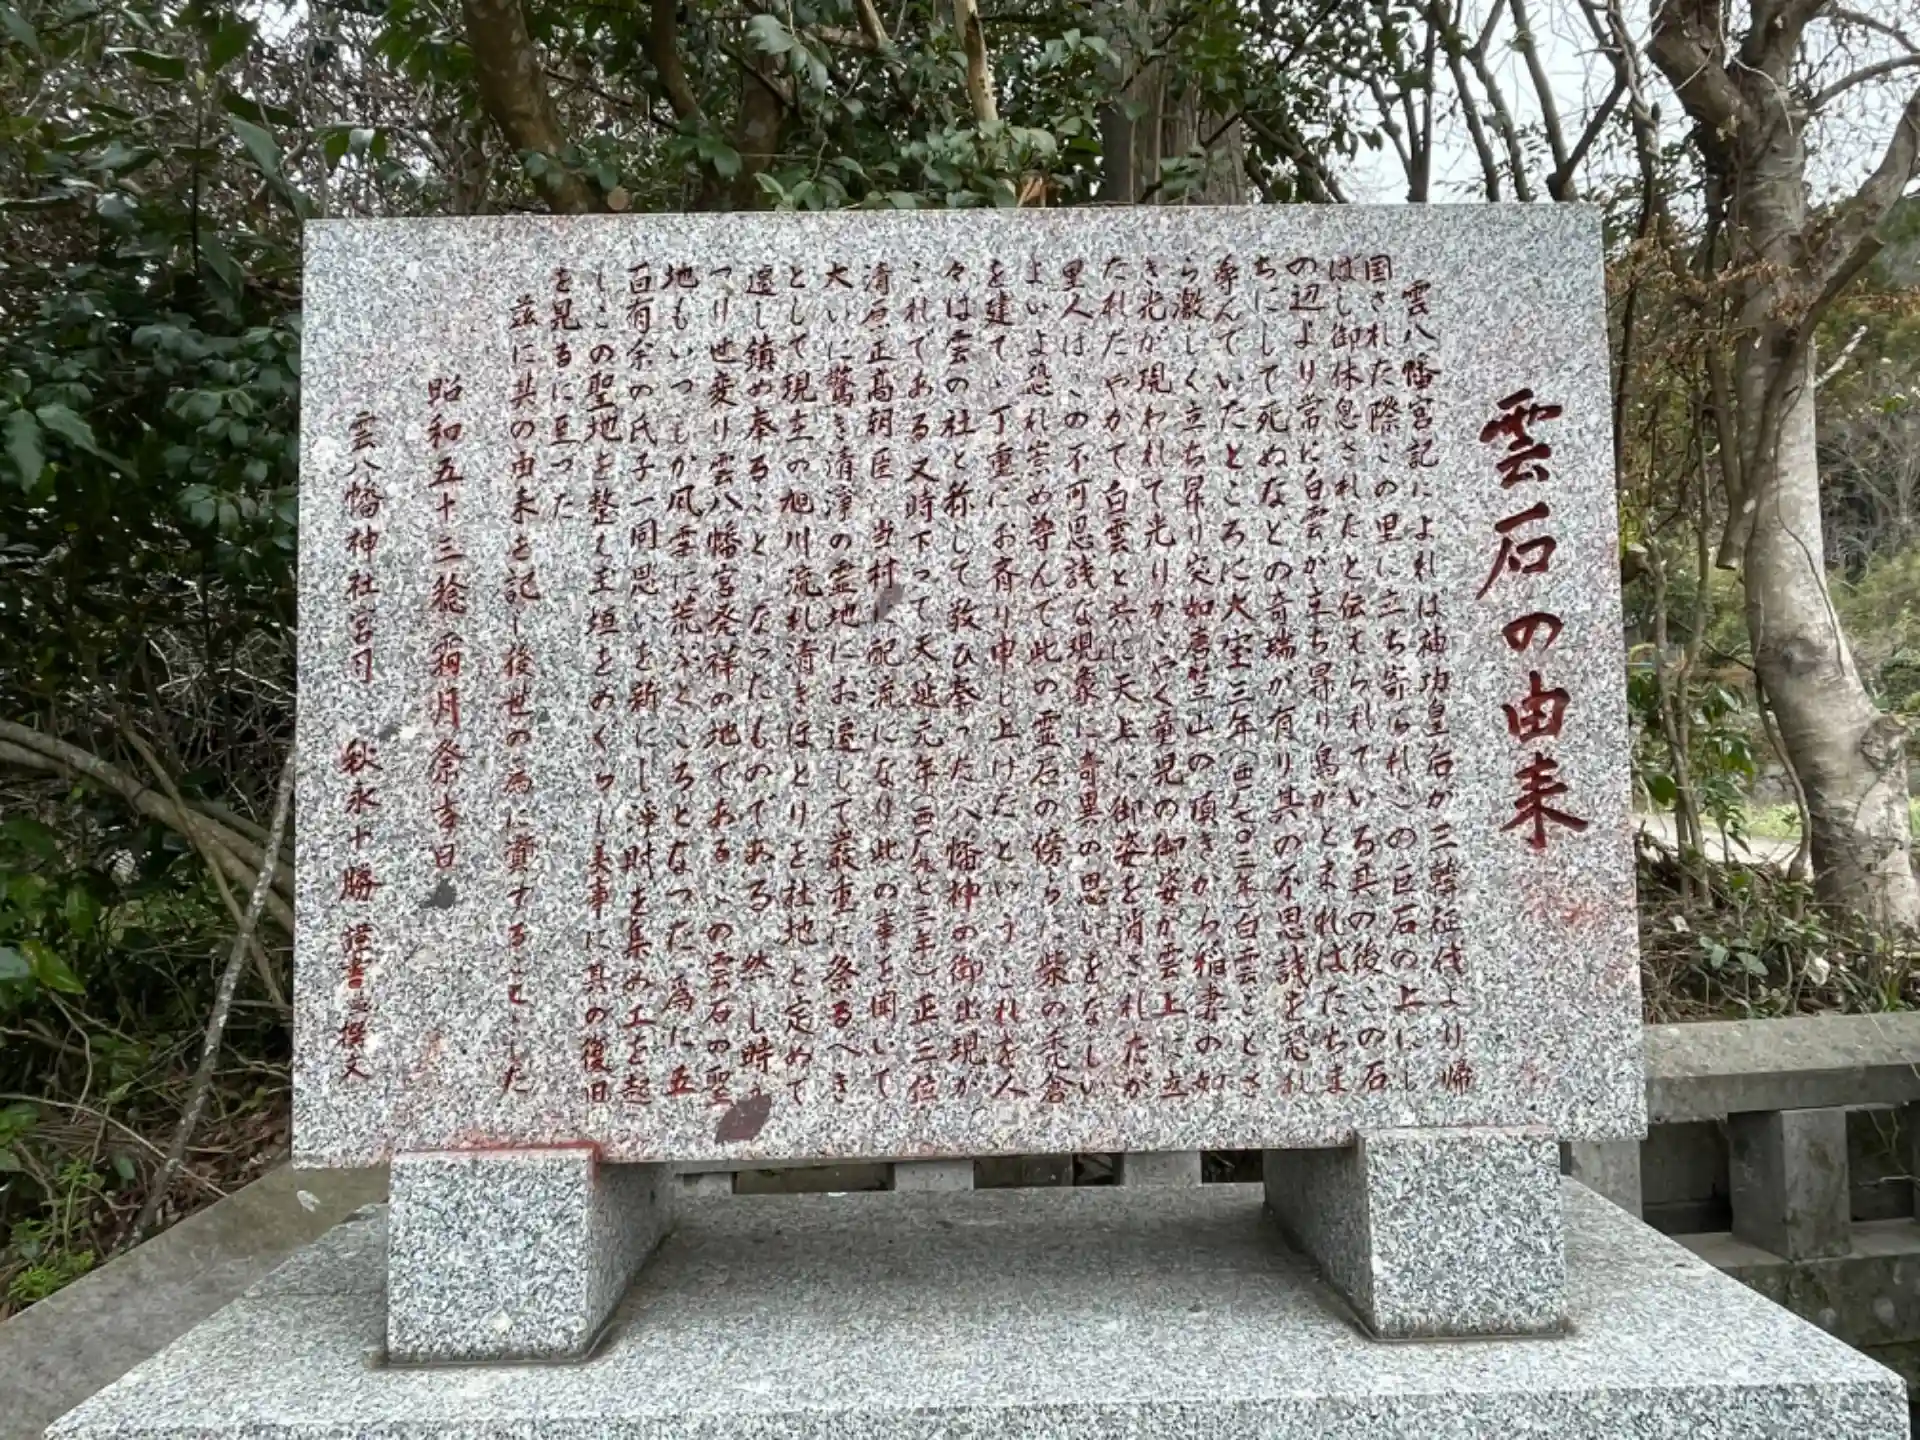 雲石の由来
雲八幡宮記によれば神功皇后が三韓征伐より帰
国された際こゝの里に立ち寄られこの巨石の上にし
ばし御休息されたと伝えられている其の後この石
の辺より常に白雲が立ち昇り鳥がとまればたちま
ちにして死ぬなどの奇瑞が有り其の不思議を恐れ
尊んでいたところに大宝三年(西暦七〇三年)白雲ことさ
ら激しく立ち昇り突如唐笠山の頂きから稲妻の如
き光が現われて光りかゞやく童児の御姿が雲上に立
たれたやがて白雲と共に天上に御姿を消されたが
里人はこの不可思議な現象に奇異の思いをなしい
よいよ恐れ崇め尊んで此の霊石の傍らに柴の禿倉
を建てゝ丁重にお斎り申し上げたというこれを人
々は雲の社と称して敬ひ奉った八幡神の御出現が
これである又時下って天延元年(西暦九七三年)正三位
清原正高朝臣当村に配流になり此の事を聞いて
大いに驚き清浄の霊地にお遷して厳重に祭るべき
として現在の旭川流れ清きほとりを社地と定めて
遷し鎮め奉ることゝなったものである然し時う
つり世変り雲八幡宮発祥の地であるこの雲石の聖
地もいつしか風雪に荒ぶところとなった為に五
百有余の氏子一同思いを新にし浄財を集め工を起
しこの聖地を整え玉垣をめぐらし美事に其の復旧
を見るに至った
茲に其の由来を記し後世の為に賚することゝした
昭和五十三稔霜月祭吉日
雲八幡神社宮司 秋永十勝 謹書並撰文